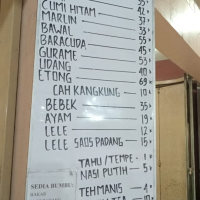 CUMI HITAM - 42
MARLIN - 37
BAWAL - 33
BARACUDA - 55
GURAME - 45
UDANG - 53
ETONG - 40
CAH KANGKUNG - 10
BEBEK - 35
AYAM - 19
LELE - 12
LELE SAOS PADANG - 15
TAHU / TEMPE - 1
NASI PUTIH - 5
SEDIA BUMBU:
BAKAR
TEH MANIS - 4